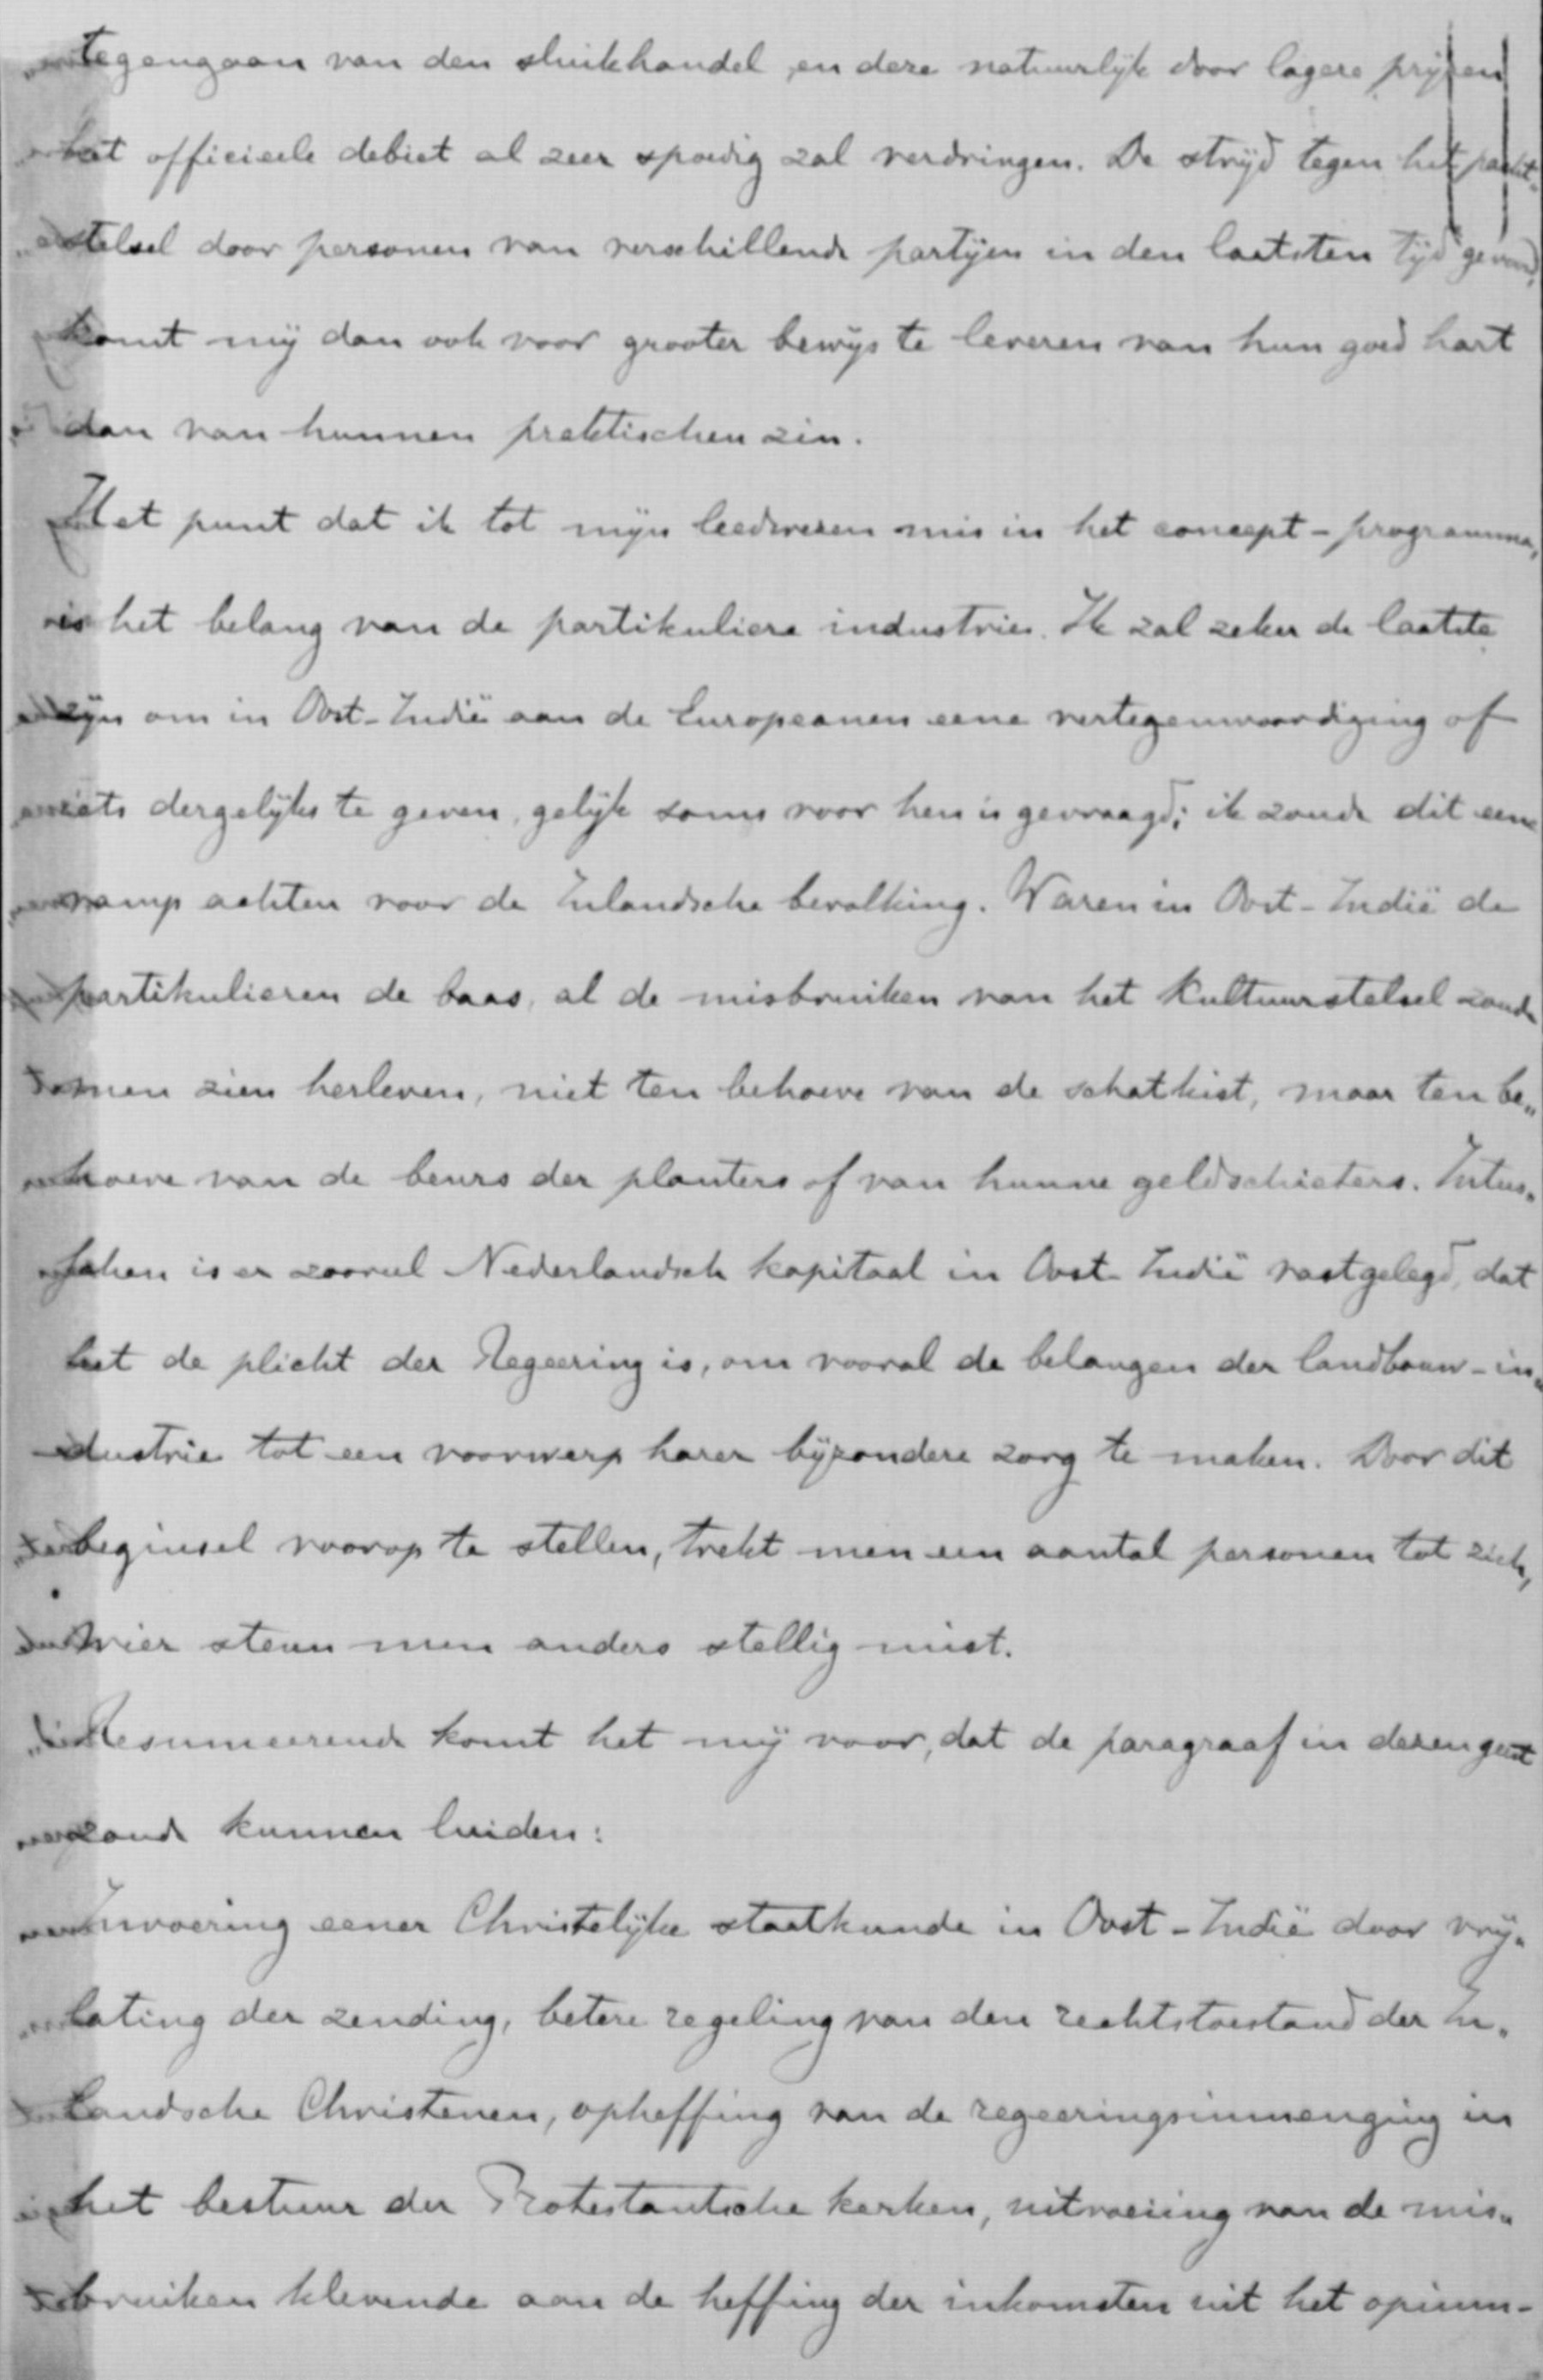 tegengaan van den sluikhandel, en deze natuurlijk door lagere prijzen
het officieele debiet al zeer spoedig zal verdringen. De strijd tegen het pacht„
stelsel door personen van verschillende partijen in den laatsten tijd gevoerd,
komt mij dan ook voor grooter bewijs te leveren van hun goed hart
dan van hunnen praktischen zin.
Het punt dat ik tot mijn leedwezen mis in het concept-programma,
is het belang van de partikuliere industrie. Ik zal zeker de laatste
zijn om in Oost-Indië aan de Europeanen eene vertegenwoordiging of
iets dergelijks te geven, gelijk soms voor hen is gevraagd; ik zoude dit eene
ramp achten voor de Inlandsche bevolking. Waren in Oost-Indië de
partikulieren de baas, al de misbruiken van het Kultuurstelsel zoude
men zien herleven, niet ten behoeve van de schatkist, maar ten be„
hoeve van de beurs der planters of van hunne geldschieters. Intus„
schen is er zooveel Nederlandsch kapitaal in Oost-Indië vastgelegd, dat
het de plicht der Regeering is, om vooral de belangen der landbouw-in„
dustrie tot een voorwerp harer bijzondere zorg te maken. Door dit
beginsel voorop te stellen, trekt men een aantal personen tot zich,
wier steun men anders stellig mist.
Resumeerende komt het mij voor, dat de paragraaf in dezen geest
zoude kunnen luiden:
Invoering eener Christelijke staatkunde in Oost-Indië door vrij„
lating der zending, betere regeling van den rechtstoestand der In„
landsche Christenen, opheffing van de regeeringsinmenging in
het bestuur der Protestantsche kerken, uitroeiing van de mis„
bruiken klevende aan de heffing der inkomsten uit het opium-